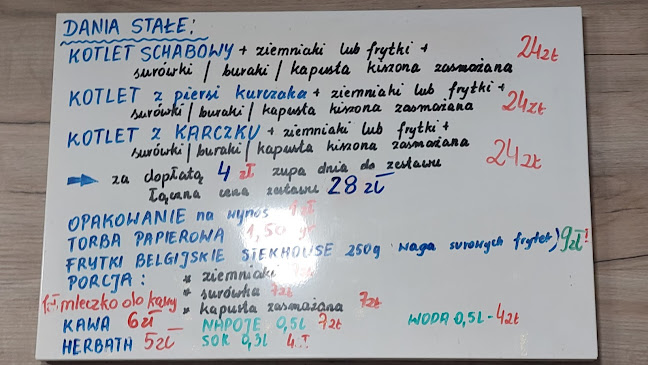 DANIA STAŁE:
KOTLET SCHABOWY + ziemniaki lub frytki + 24zł
surówki / buraki / kapusta kiszona zasmażana
KOTLET z piersi kurczaka + ziemniaki lub frytki +
surówki / buraki / kapusta kiszona zasmażana 24zł
KOTLET z KARCZKU + ziemniaki lub frytki +
surówki / buraki / kapusta kiszona zasmażana 24zł
za dopłatą 4 zł zupa dnia do zestawu
Łączna cena zestawu 28 zł
OPAKOWANIE na wynos zł
TORBA PAPIEROWA 1,50
FRYTKI BELGIJSKIE STEKHOUSE 250g waga surowych frytek) 9zł!
PORCJA: * ziemniaki
* surówka 7zł
1zł mleczko do kawy * kapusta zasmażana 7zł
KAWA 6zł NAPOJE 0,5L 7zł WODA 0,5L - 4zł
HERBATA 5zł SOK 0,3L 4